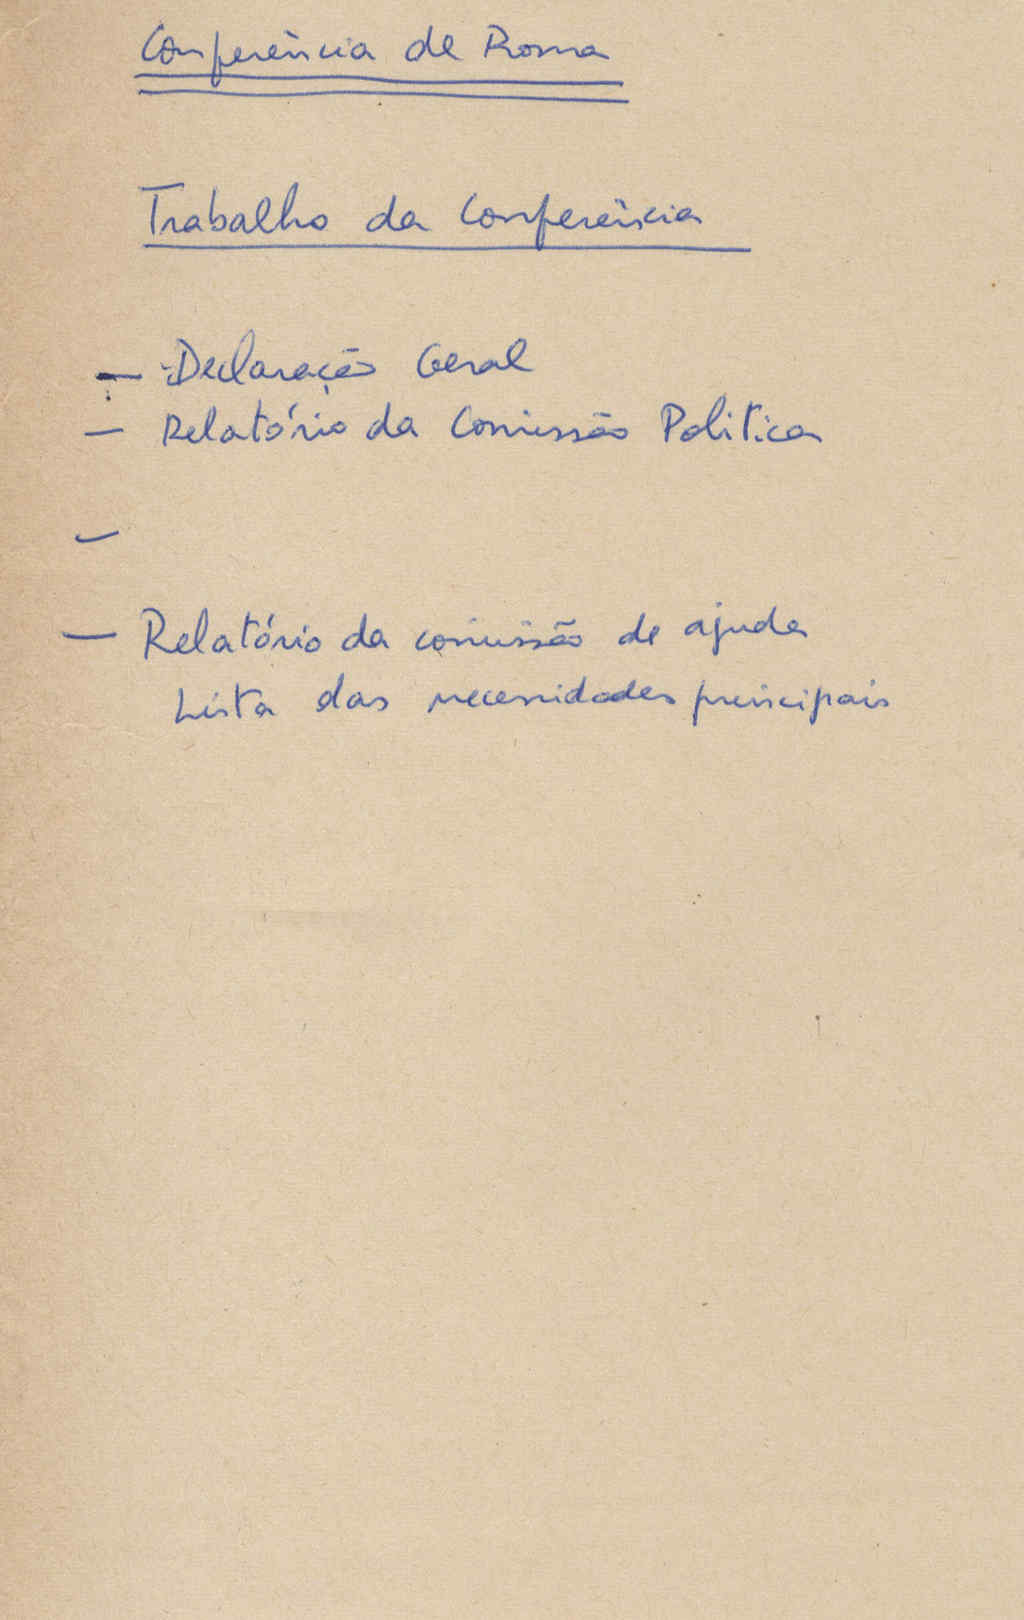 Conferência de Roma
Trabalho da Conferência
— Declaração Geral
— Relatório da Comissão Politica
—
— Relatório da comissão de ajuda
Lista das necessidades principais